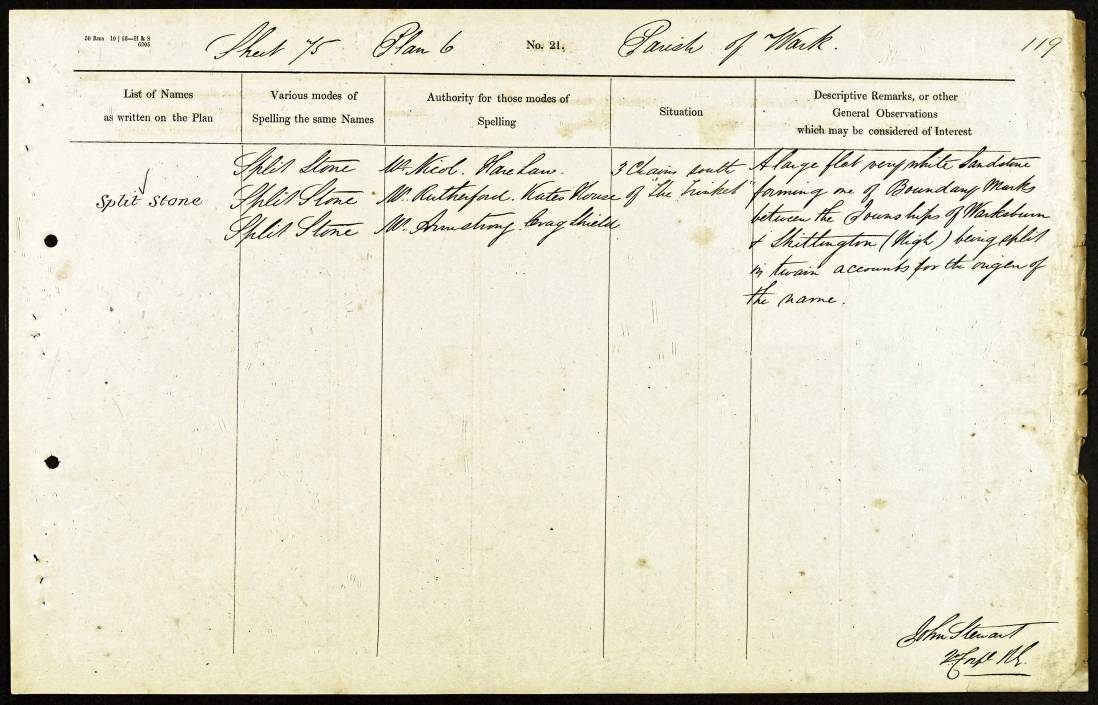 50 Rms 10 | 56—H & S
6205
Sheet 75 Plan 6 No. 21. Parish of Wark. 119
List of Names
as written on the Plan
Various modes of
Spelling the same Names
Authority for those modes of
Spelling
Situation
Descriptive Remarks, or other
General Observations
which may be considered of Interest
Split Stone
Split Stone
Split Stone
Split Stone
Mr. Nicol. Hare Law.
Mr. Rutherford. Kates House
Mr. Armstrong. Crag Shield
3 Chains south
of "The Trinket"
A large flat very white Sandstone
forming one of Boundary Marks
between the Townships of Warksburn
& Shittington (High) being split
in twain accounts for the origen of
the name.
John Stewart
2d Corpl R.E.